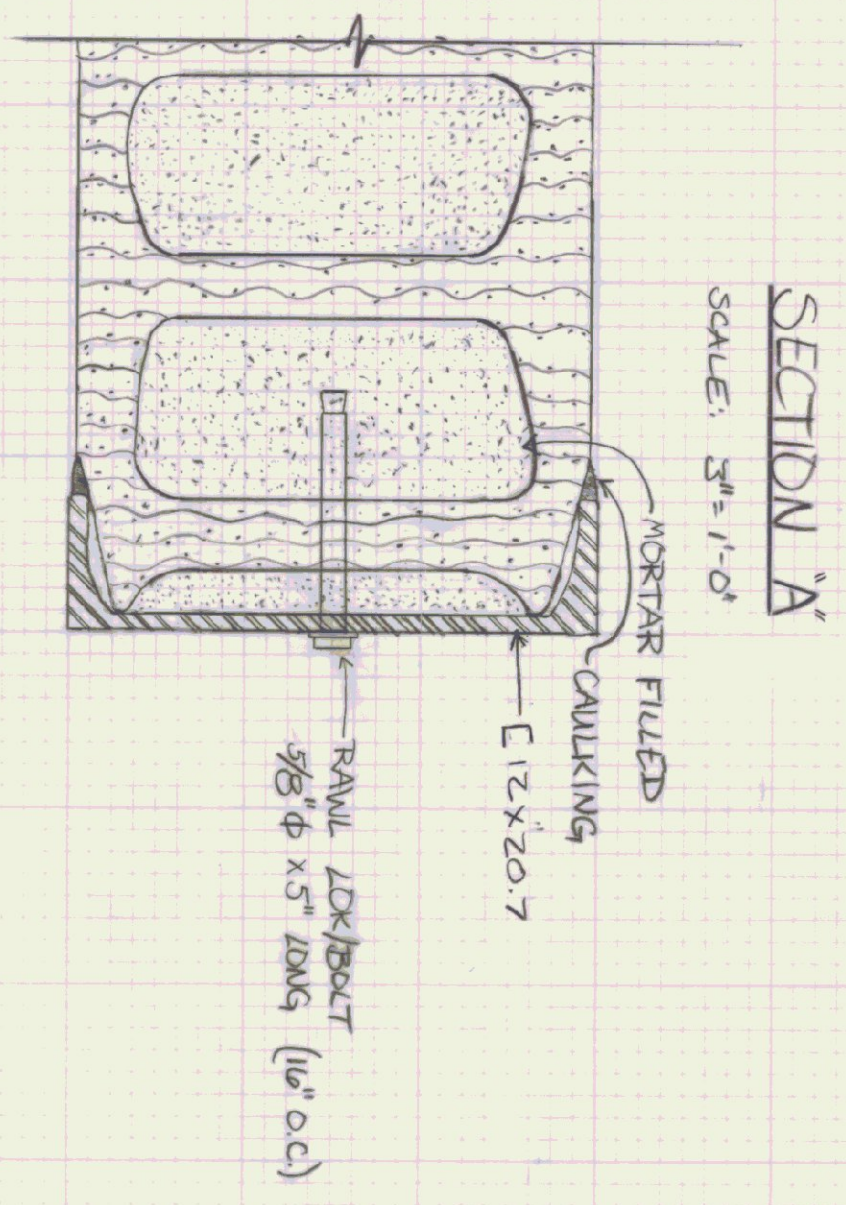 SECTION "A"
SCALE: 3" = 1'-0"
MORTAR FILLED
CAULKING
[ 12 x 20.7
RAWL LOK/BOLT
5/8" Φ x 5" LONG (16" O.C.)